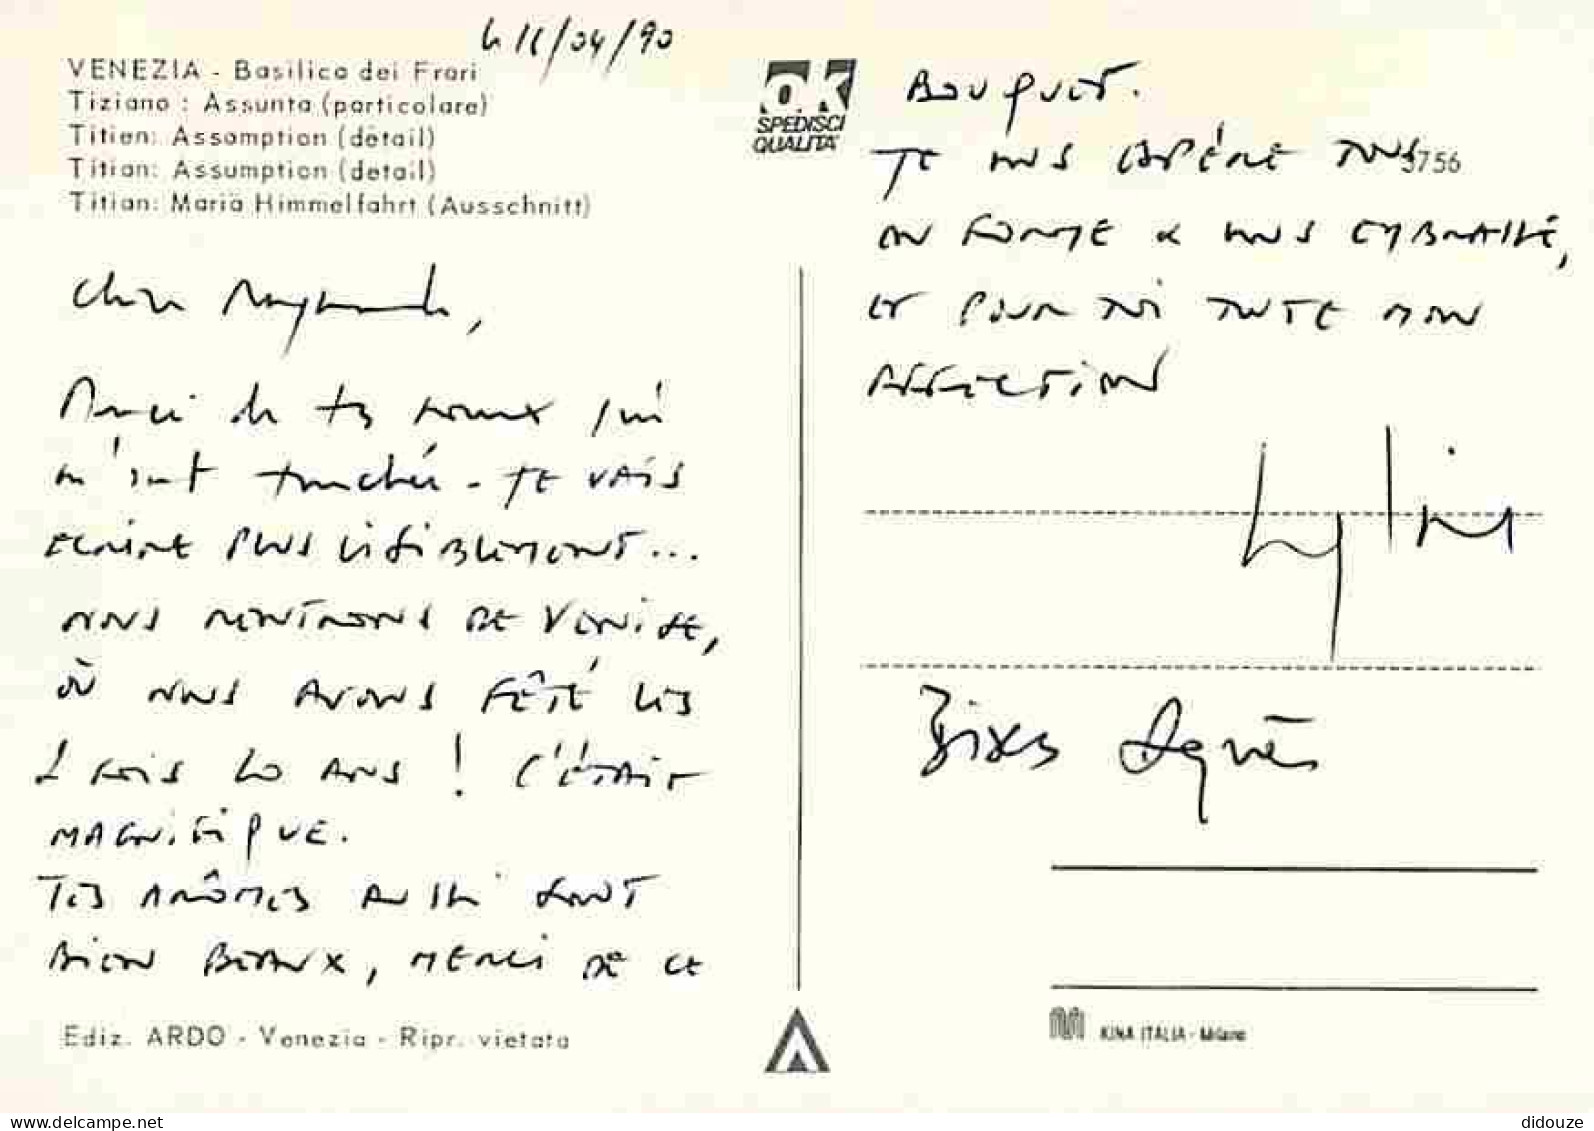 le 11/04/90
VENEZIA - Basilica dei Frari
Tiziano : Assunta (particolare)
Titien: Assomption (détail)
Titian: Assumption (detail)
Titian: Mariä Himmelfahrt (Ausschnitt)
OK
SPEDISCI
QUALITA'
5756
Chère Raymonde,
Merci de tes voeux qui
m'ont touchée - JE VAIS
ECRIRE PLUS LISIBLEMENT...
NOUS RENTRONS DE VENISE,
OÙ NOUS AVONS FÊTÉ LES
2 FOIS 20 ANS ! C'ÉTAIT
MAGNIFIQUE.
TES ARÔMES AUSSI SONT
BIEN BEAUX, MERCI DE CE
BOUQUET.
JE VOUS ESPÈRE TOUS
EN FORME & VOUS EMBRASSE,
ET POUR TOI TOUTE MON
AFFECTION
Bises Agnès
Ediz. ARDO - Venezia - Ripr. vietata
KINA ITALIA - Milano
delcampe.net
didouze